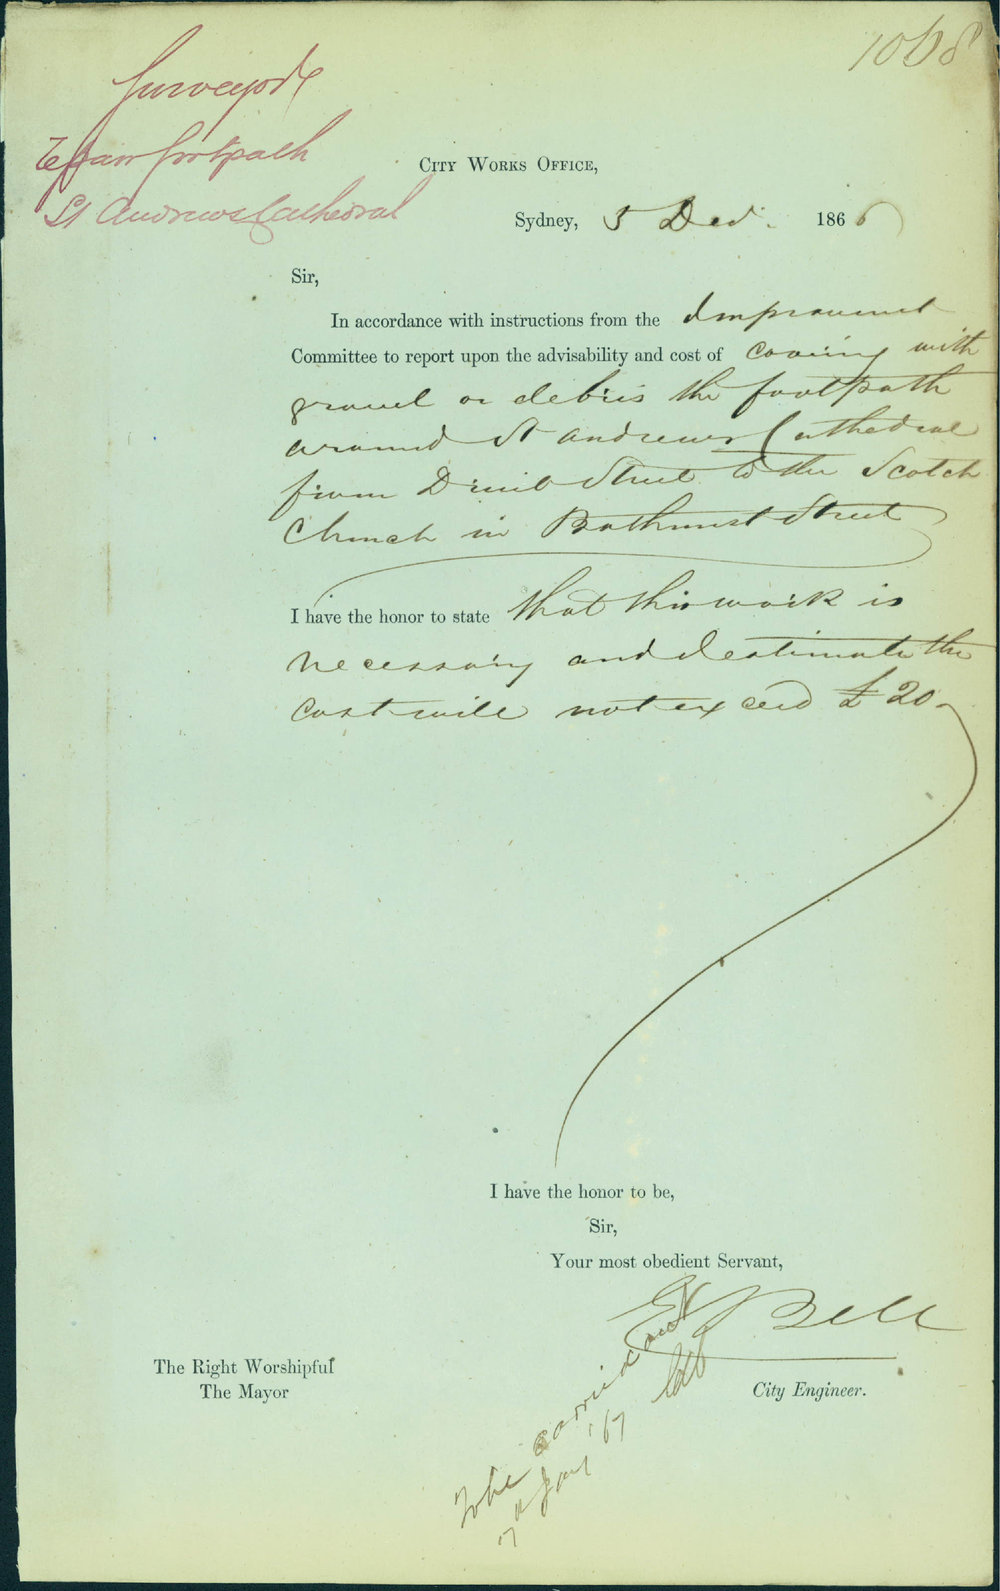 1068
Surveyors
Repair footpath
St Andrews Cathedral
City Works Office,
Sydney, 5 Decr. 1866
Sir,
In accordance with instructions from the Improvement
Committee to report upon the advisability and cost of covering with
gravel or debris the footpath
around St Andrews Cathedral
from Druitt Street to the Scotch
Church in Bathurst Street
I have the honor to state that this work is
necessary and I estimate the
cost will not exceed £20
I have the honor to be,
Sir,
Your most obedient Servant,
Bell
City Engineer.
The Right Worshipful
The Mayor
To be carried out
7th Jany '67